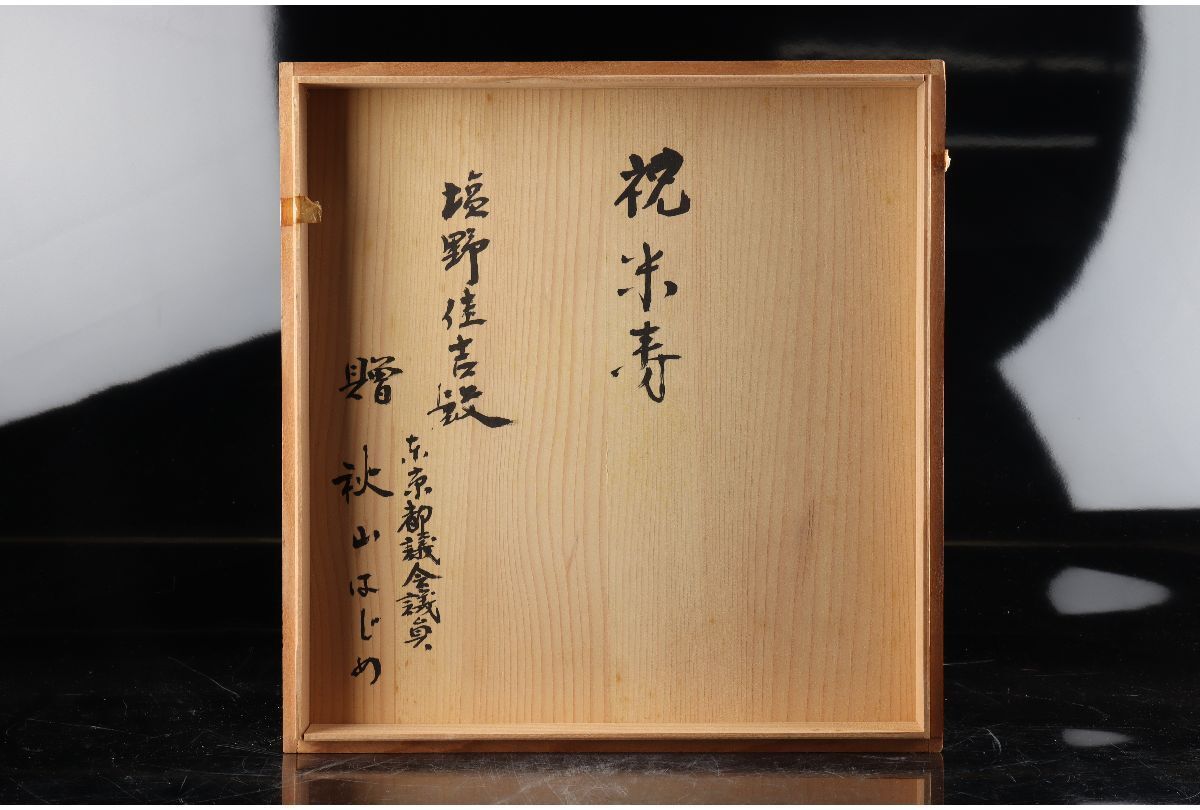 祝米寿
塩野佳吉殿
東京都議会議員
贈 秋山はじめ